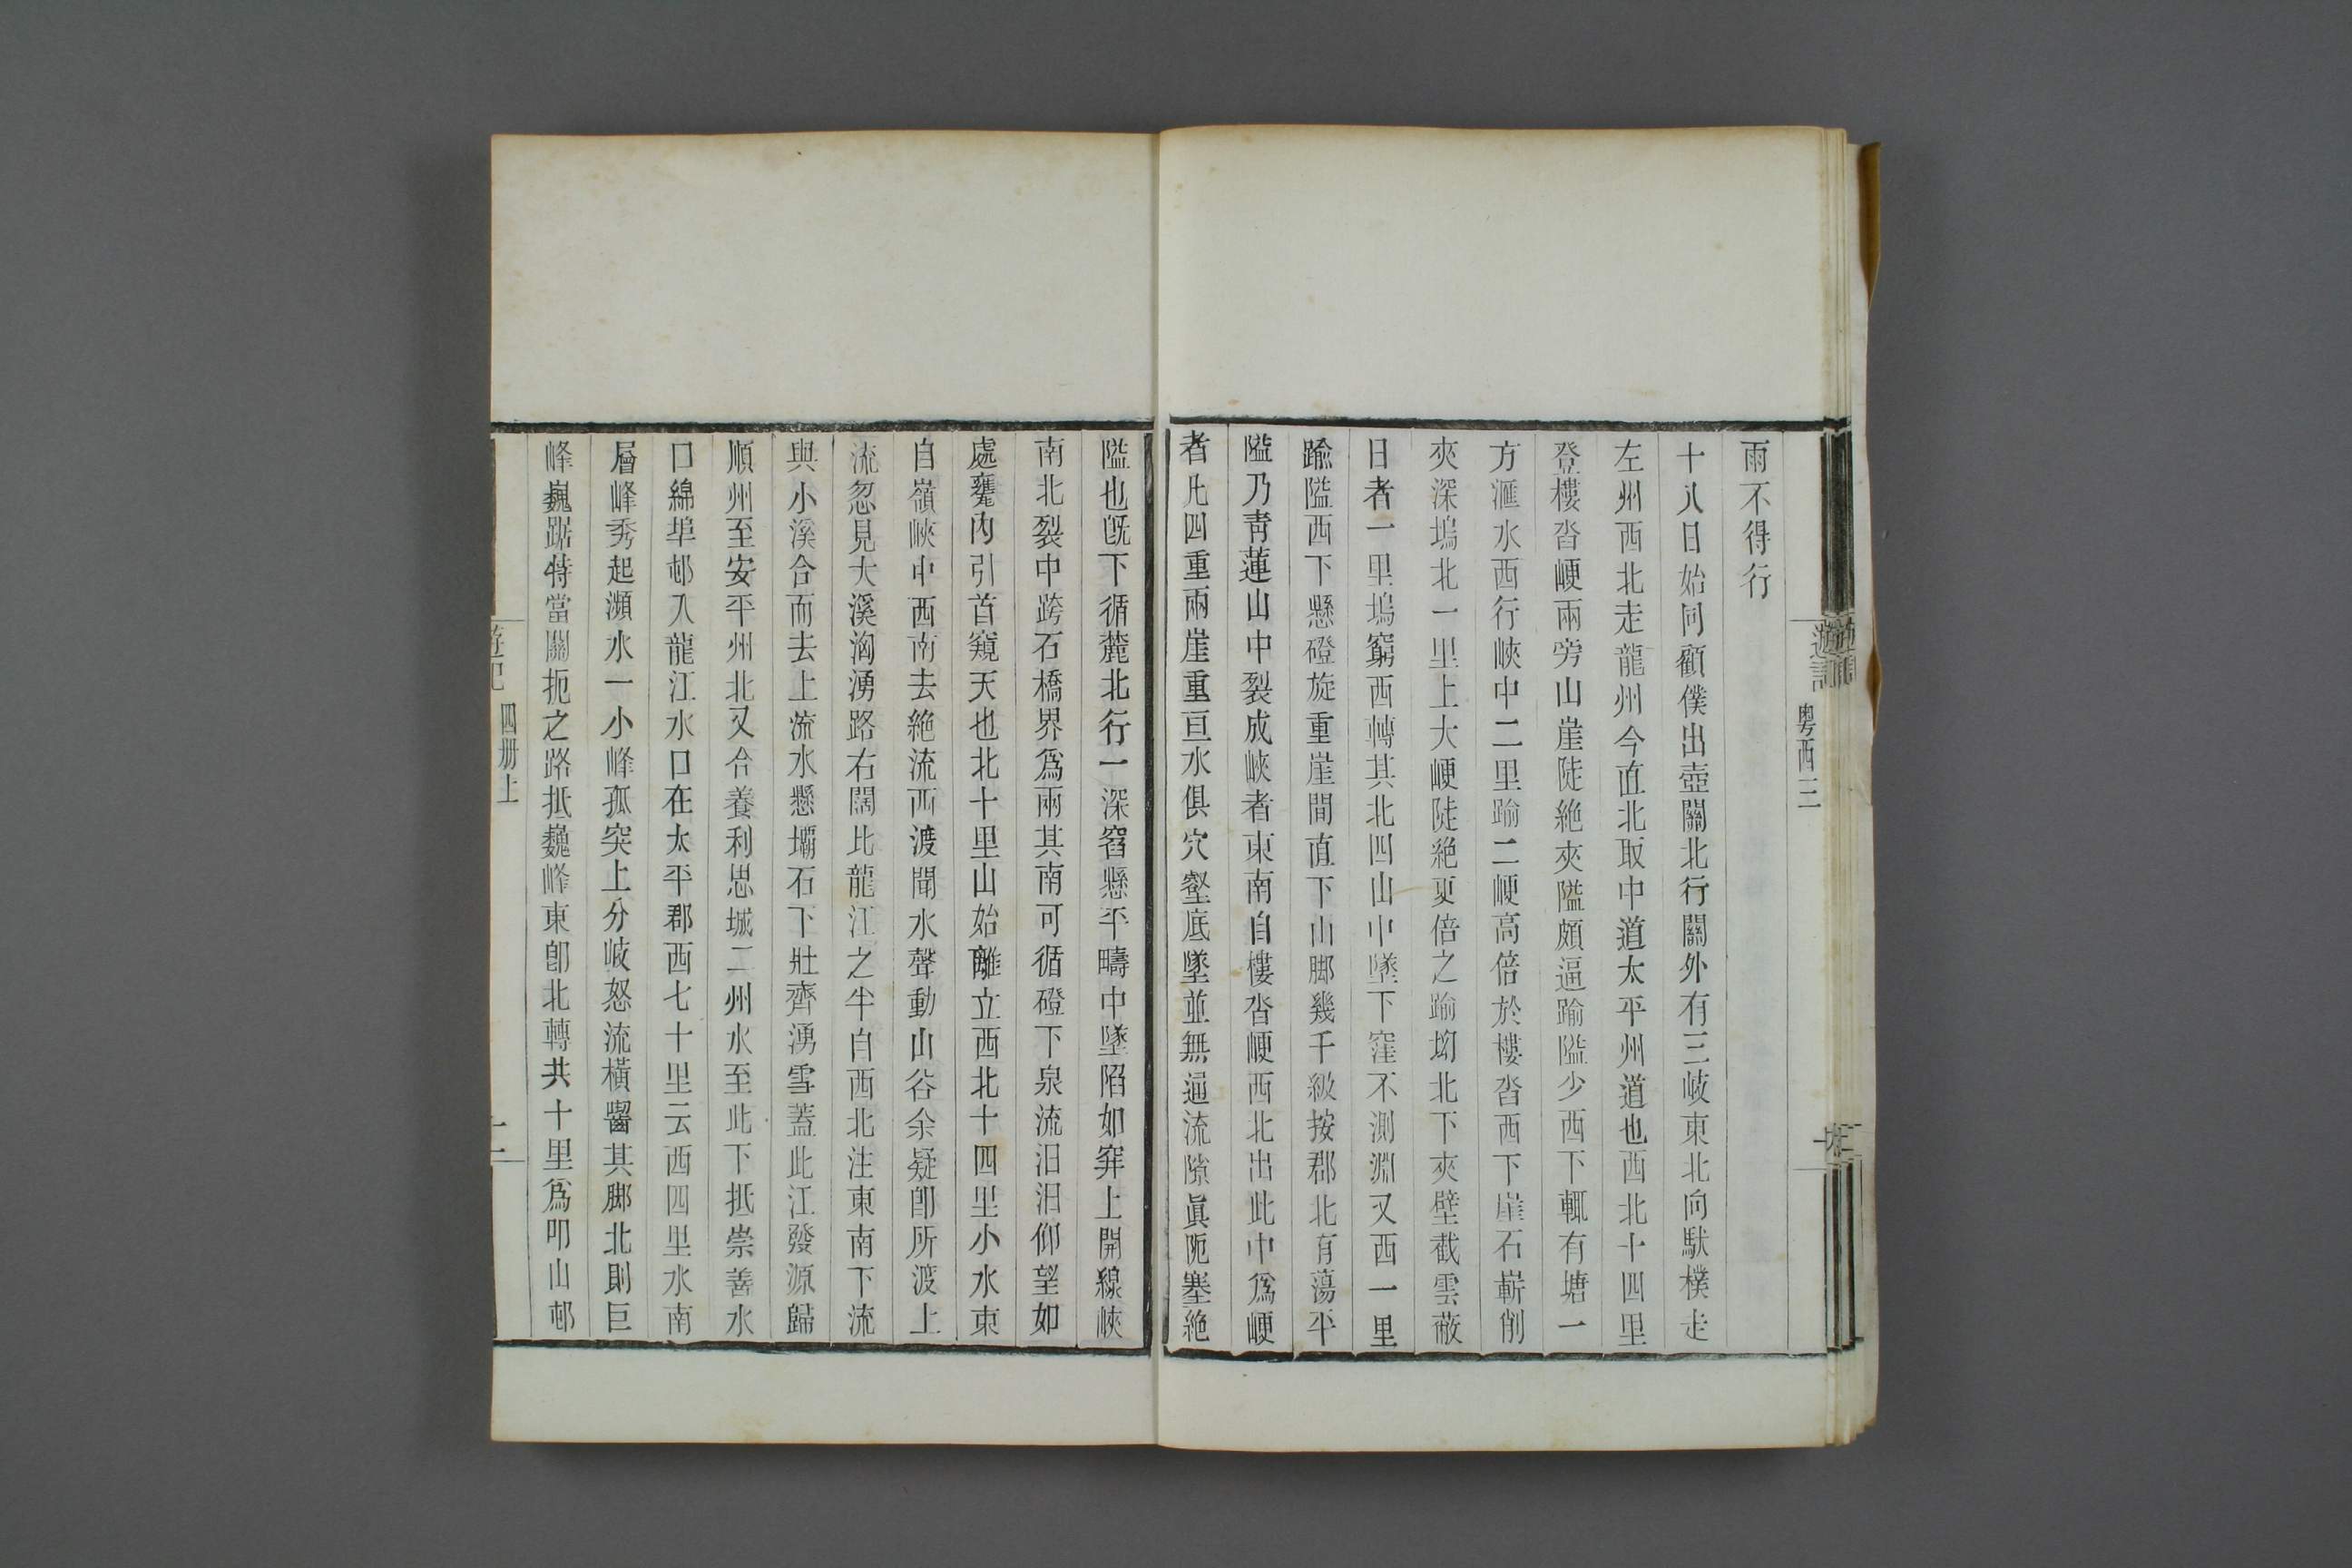 遊記
粤西三
雨不得行
十八日始同顧僕出壺關北行關外有三岐東北向馱樸走
左州西北走龍州今直北取中道太平州道也西北十四里
登樓沓峺兩旁山崖陡絶夾隘頗逼踰隘少西下輒有塘一
方滙水西行峽中二里踰二峺高倍於樓沓西下崖石嶄削
夾深塢北一里上大峺陡絶更倍之踰坳北下夾壁截雲蔽
日者一里塢窮西轉其北四山中墜下窪不測淵又西一里
踰隘西下懸磴旋重崖間直下山脚幾千級按郡北有蕩平
隘乃靑蓮山中裂成峽者東南自樓沓峺西北出此中爲峺
者凡四重兩崖重亘水俱穴壑底墜並無通流隙眞阨塞絶
隘也旣下循麓北行一深窞懸平疇中墜陷如穽上開線峽
南北裂中跨石橋界爲兩其南可循磴下泉流汨汨仰望如
處甕內引首窺天也北十里山始離立西北十四里小水東
自嶺峽中西南去絶流西渡聞水聲動山谷余疑卽所渡上
流忽見大溪洶湧路右闊比龍江之半自西北注東南下流
與小溪合而去上流水懸壩石下壯齊湧雪蓋此江發源歸
順州至安平州北又合養利思城二州水至此下抵崇善水
口綿埠邨入龍江水口在太平郡西七十里云西四里水南
層峰秀起瀕水一小峰孤突上分岐怒流橫齧其脚北則巨
峰巍踞特當關扼之路抵巍峰東卽北轉共十里爲叩山邨
遊記
四册上